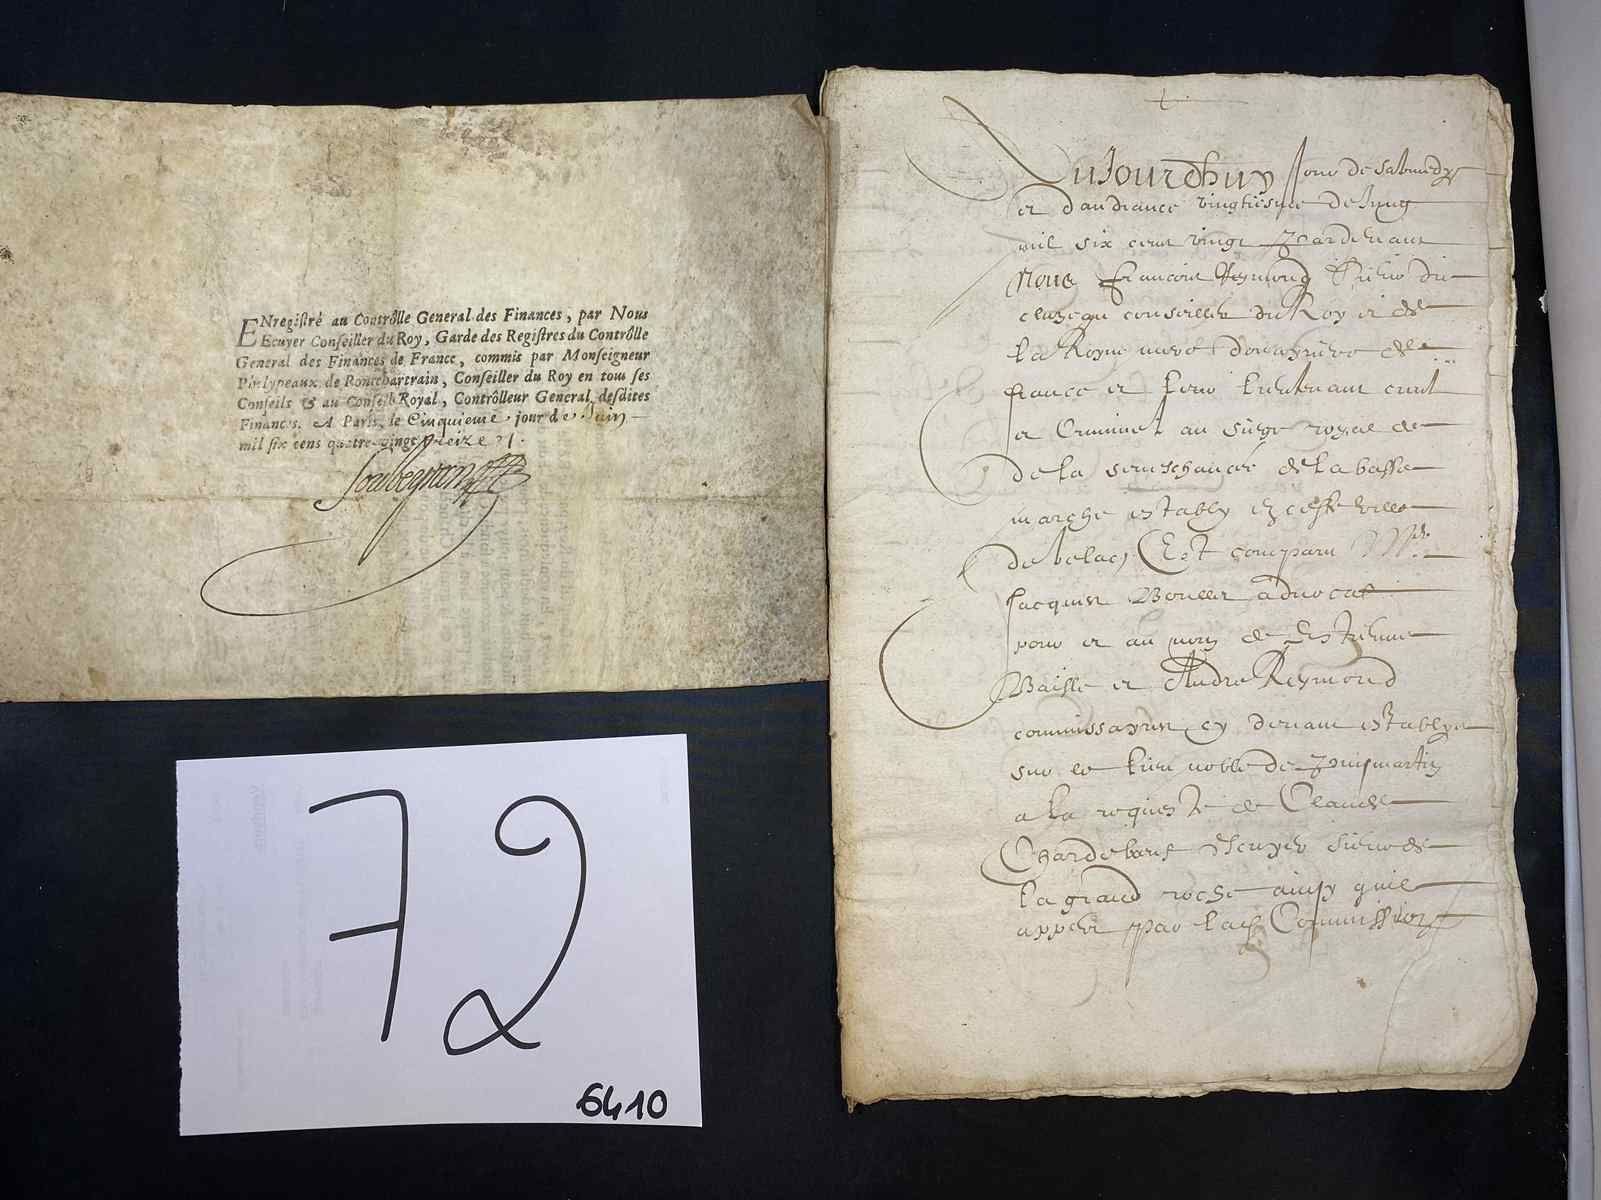 ENregistré au Controlle General des Finances, par Nous
Ecuyer Conseiller du Roy, Garde des Registres du Controlle
General des Finances de France, commis par Monseigneur
Phelypeaux de Pontchartrain, Conseiller du Roy en tous ses
Conseils & au Conseil Royal, Controlleur General desdites
Finances. A Paris, le Cinquieme jour de Juin
mil six cens quatre-vingt treize
Soubeyran
Aujourdhuy Jour de sabmedy
et daudiance vingtiesme de Jung
mil six cens vingt
Nous francois Reymond sieur du
conseiller du Roy et de
la Royne mere douayriere de
france et leur lieutenant civil
et Criminel au siege royal de
de la seneschaucee de la basse
marche estably en ceste ville
de belac Est comparu Mre
Jacques advocat
pour et au nom de Estienne
et Andre Reymond
commissayres cy devant establys
sur le lieu noble de
a la requeste de Claude
escuyer sieur de
la grand roche ainsy quil
appert par la Commission
72
6410